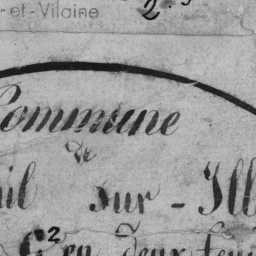 -et-Vilaine
2.
Commune
de
sur - Ill
2 en deux feui